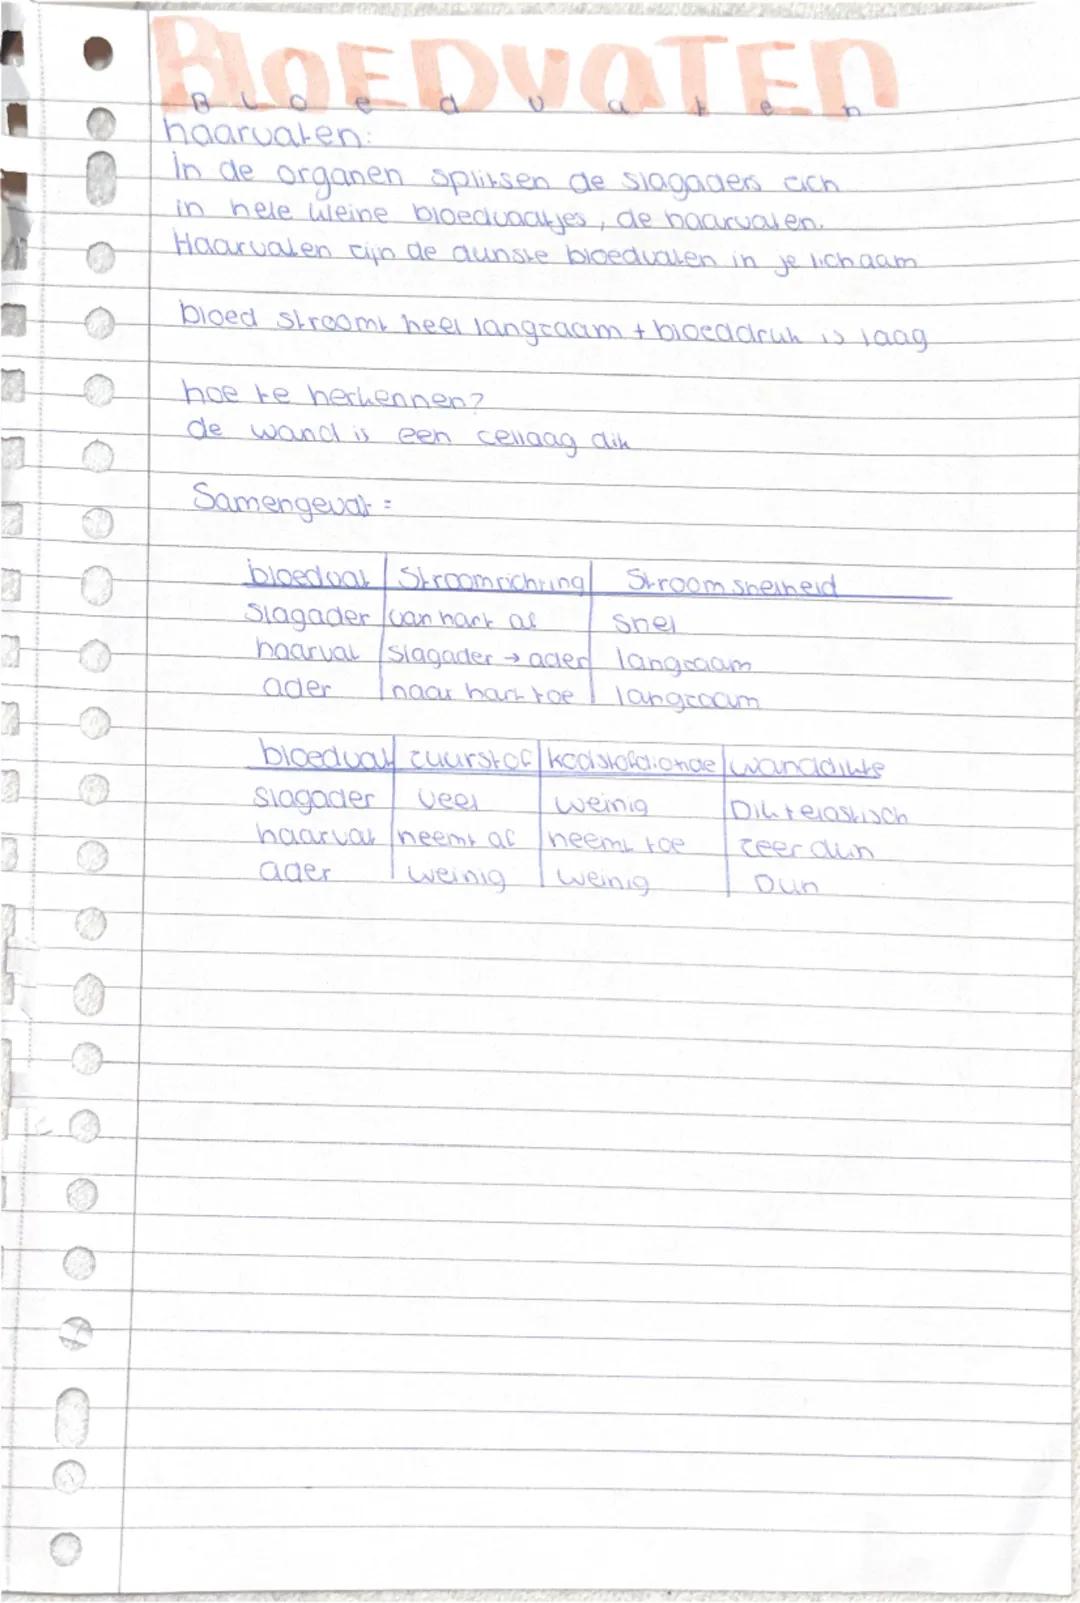 BLOEDVATEN
Bloedvaten
haarvaten:
in de organen splitsen de slagaders zich
in hele kleine bloedvaatjes, de haarvaten.
Haarvaten zijn de dunste bloedvaten in je lichaam
bloed stroomt heel langzaam + bloeddruk is laag
hoe te herkennen?
de wand is een cellaag dik
Samengevat:
bloedvat Stroomrichting Stroomsnelheid
Slagader van hart af snel
haarvat slagader → ader langzaam
ader naar hart toe langzaam
bloedvat zuurstof koolstofdioxide wanddikte
Slagader veel weinig Dik + elastisch
haarvat neemt af neemt toe zeer dun
ader weinig weinig Dun